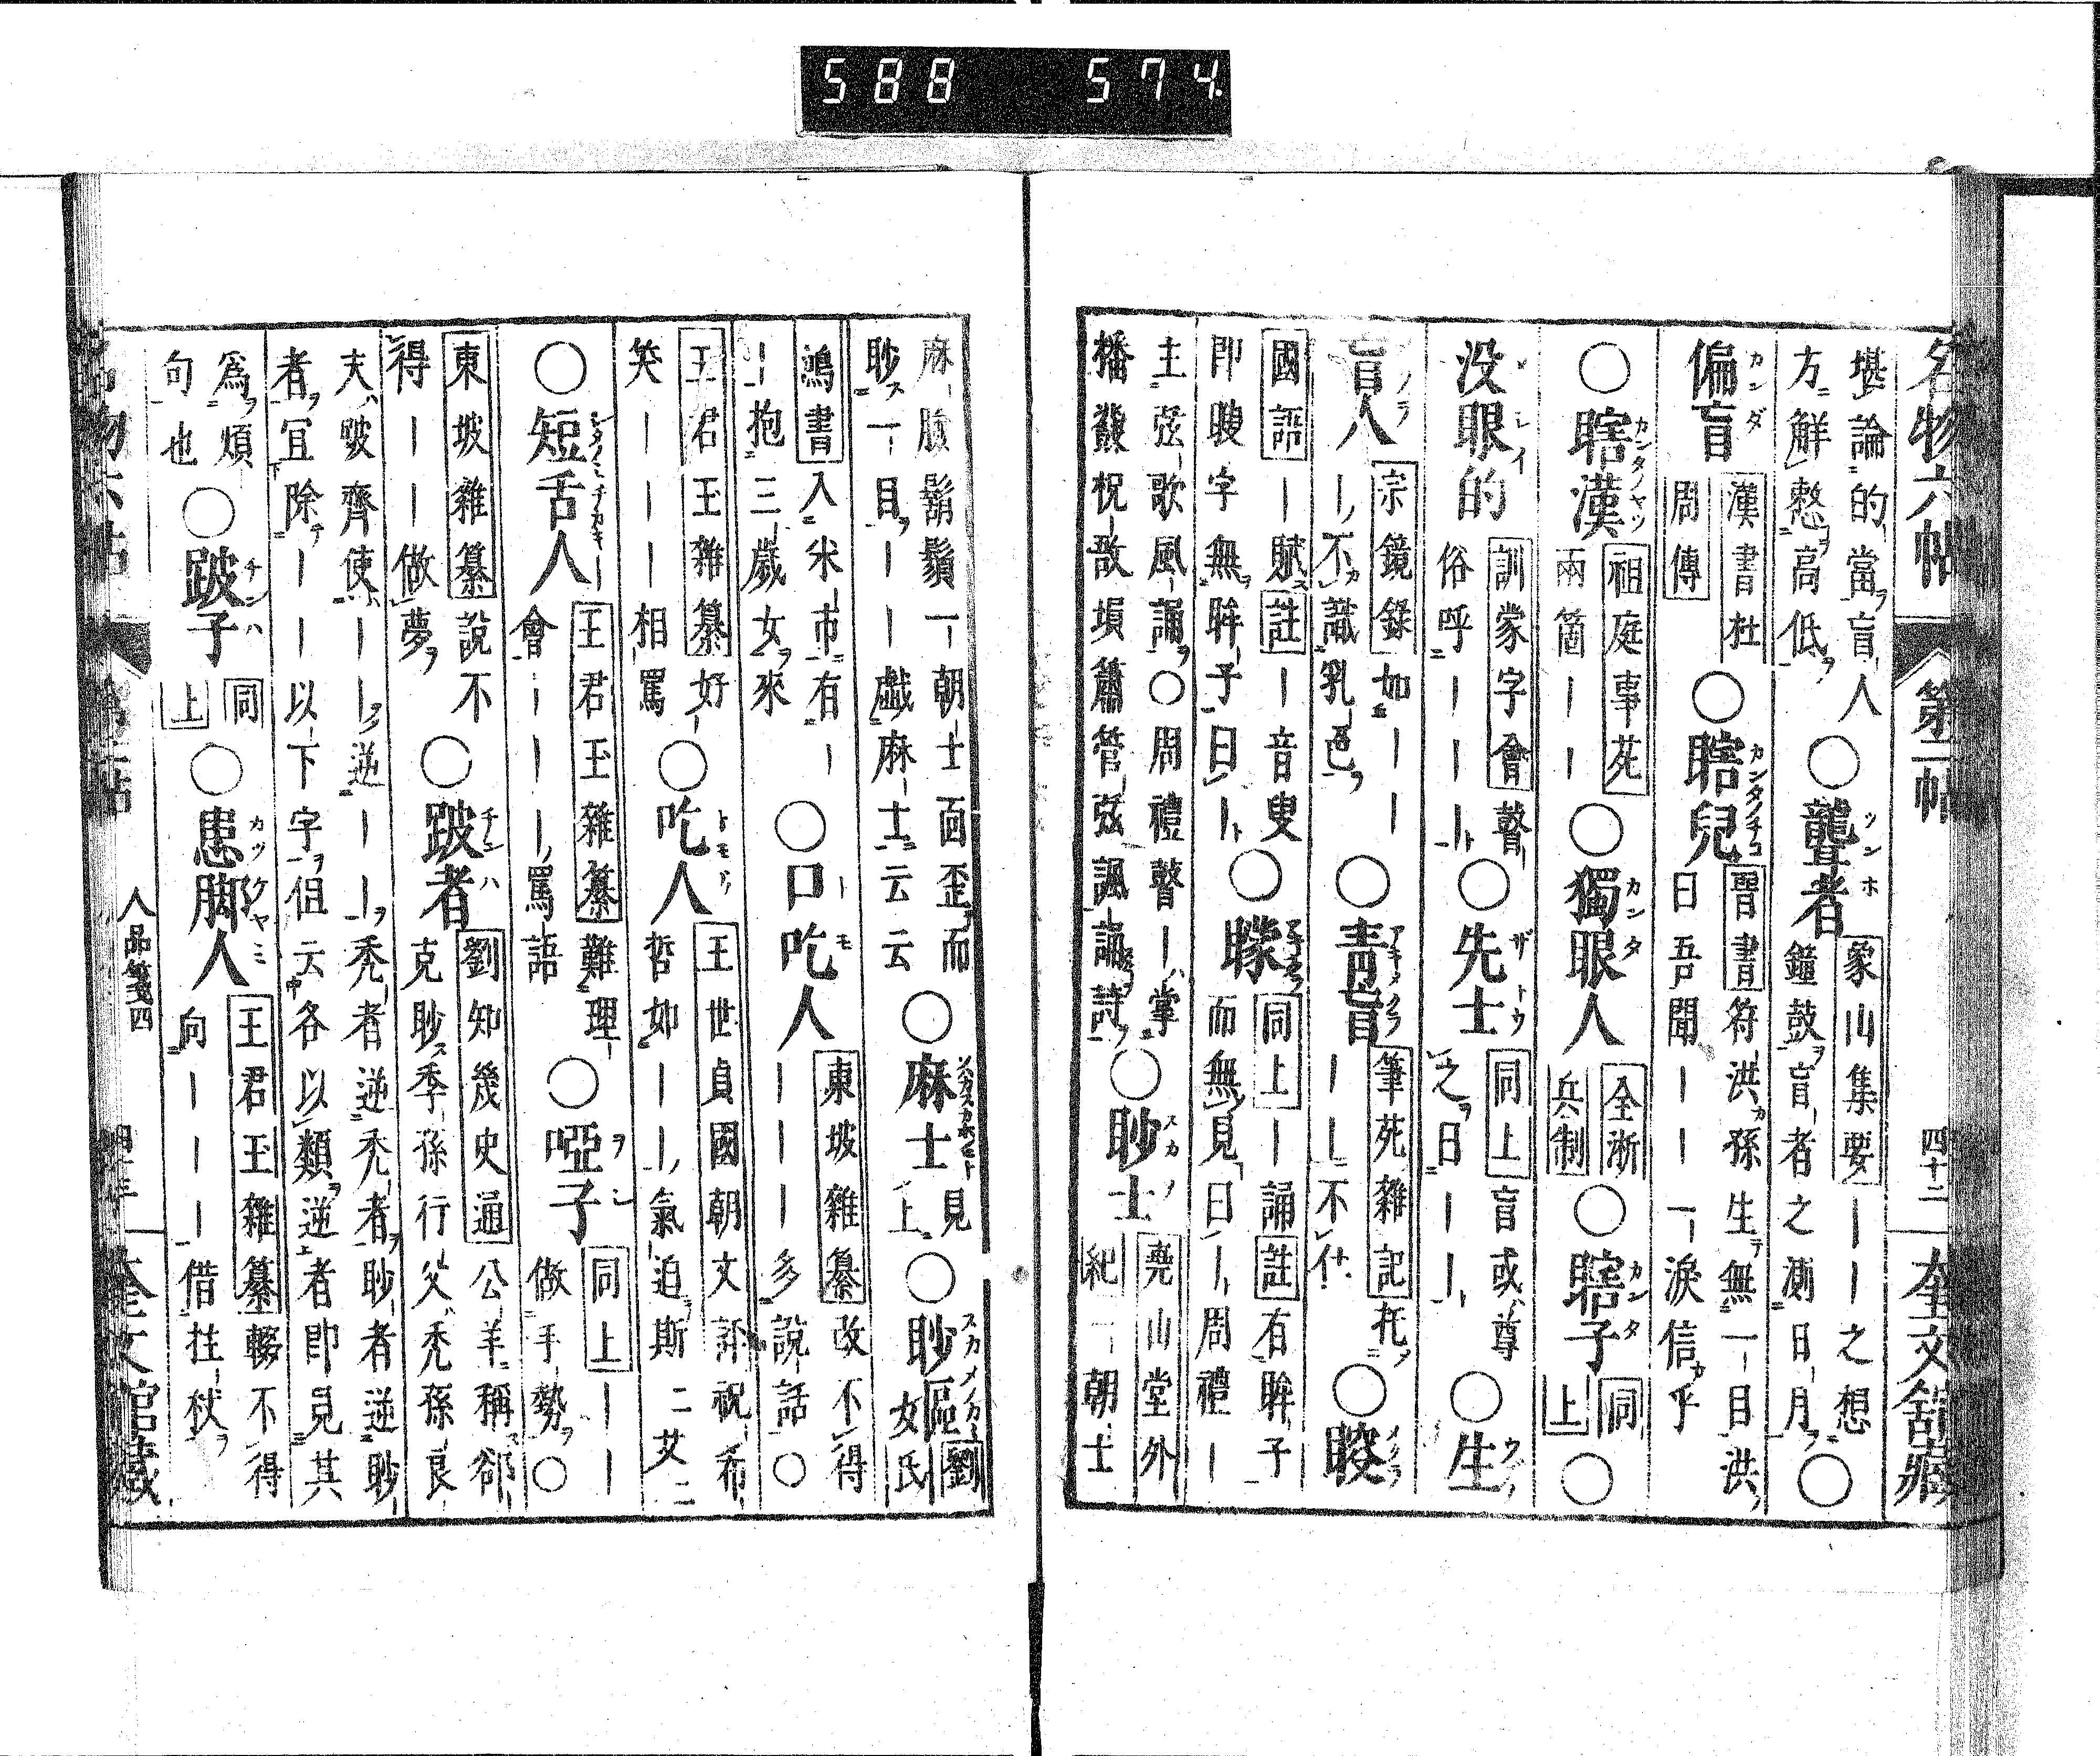 588 574.
名物六帖 第二帖 四十二 奎文館藏
堪論的當盲人○聾者 象山集要 ｜｜之想
方解愁高低 鐘鼓盲者之測日月○
偏盲 漢書杜周傳 ○瞎兒 晉書 符洪孫生無一目洪
曰吾聞｜｜一淚信乎
○瞎漢 祖庭事苑 兩箇｜｜○獨眼人 全浙兵制 ○瞎子 同上 ○
没眼的 訓蒙字會 瞽
俗呼｜｜｜○先士 同上 盲或尊
之曰｜｜○生
盲人 宗鏡錄 如｜｜
｜不識乳色○青盲 筆苑雜記 托
｜｜不仕○瞍
國語 ｜賦 註 ｜音叟
即瞍字無眸子曰｜○矇 同上 ｜誦 註 有眸子
而無見曰｜周禮｜
主弦歌風誦○周禮瞽｜掌
播鼗柷敔塤簫管弦諷誦詩○眇士 堯山堂外
紀 一朝士
麻臉鬍鬚一朝士面歪而
眇一目｜｜戲麻士云云○麻士 見上 ○眇嫗 劉
女氏
鴻書 入米市有｜
｜抱三歲女來 ○口吃人 東坡雜纂 改不得
｜｜｜多說話○
王君玉雜纂 好
笑｜｜｜相罵○吃人 王世貞國朝文評 祝希
哲如｜｜氣迫斯二艾二
○短舌人 王君玉雜纂 難理
會｜｜｜罵語○啞子 同上 ｜｜
做手勢○
東坡雜纂 說不
得｜｜做夢○跛者 劉知幾史通 公羊稱郤
克眇季孫行父禿孫良
夫跛齊使｜｜逆｜｜禿者逆禿者眇者逆眇
者宜除｜｜以下字但云各以類逆者即見其
爲煩
句也 ○跛子 同上 ○患脚人 王君玉雜纂 轎不得
向｜｜｜借拄杖
人品箋四